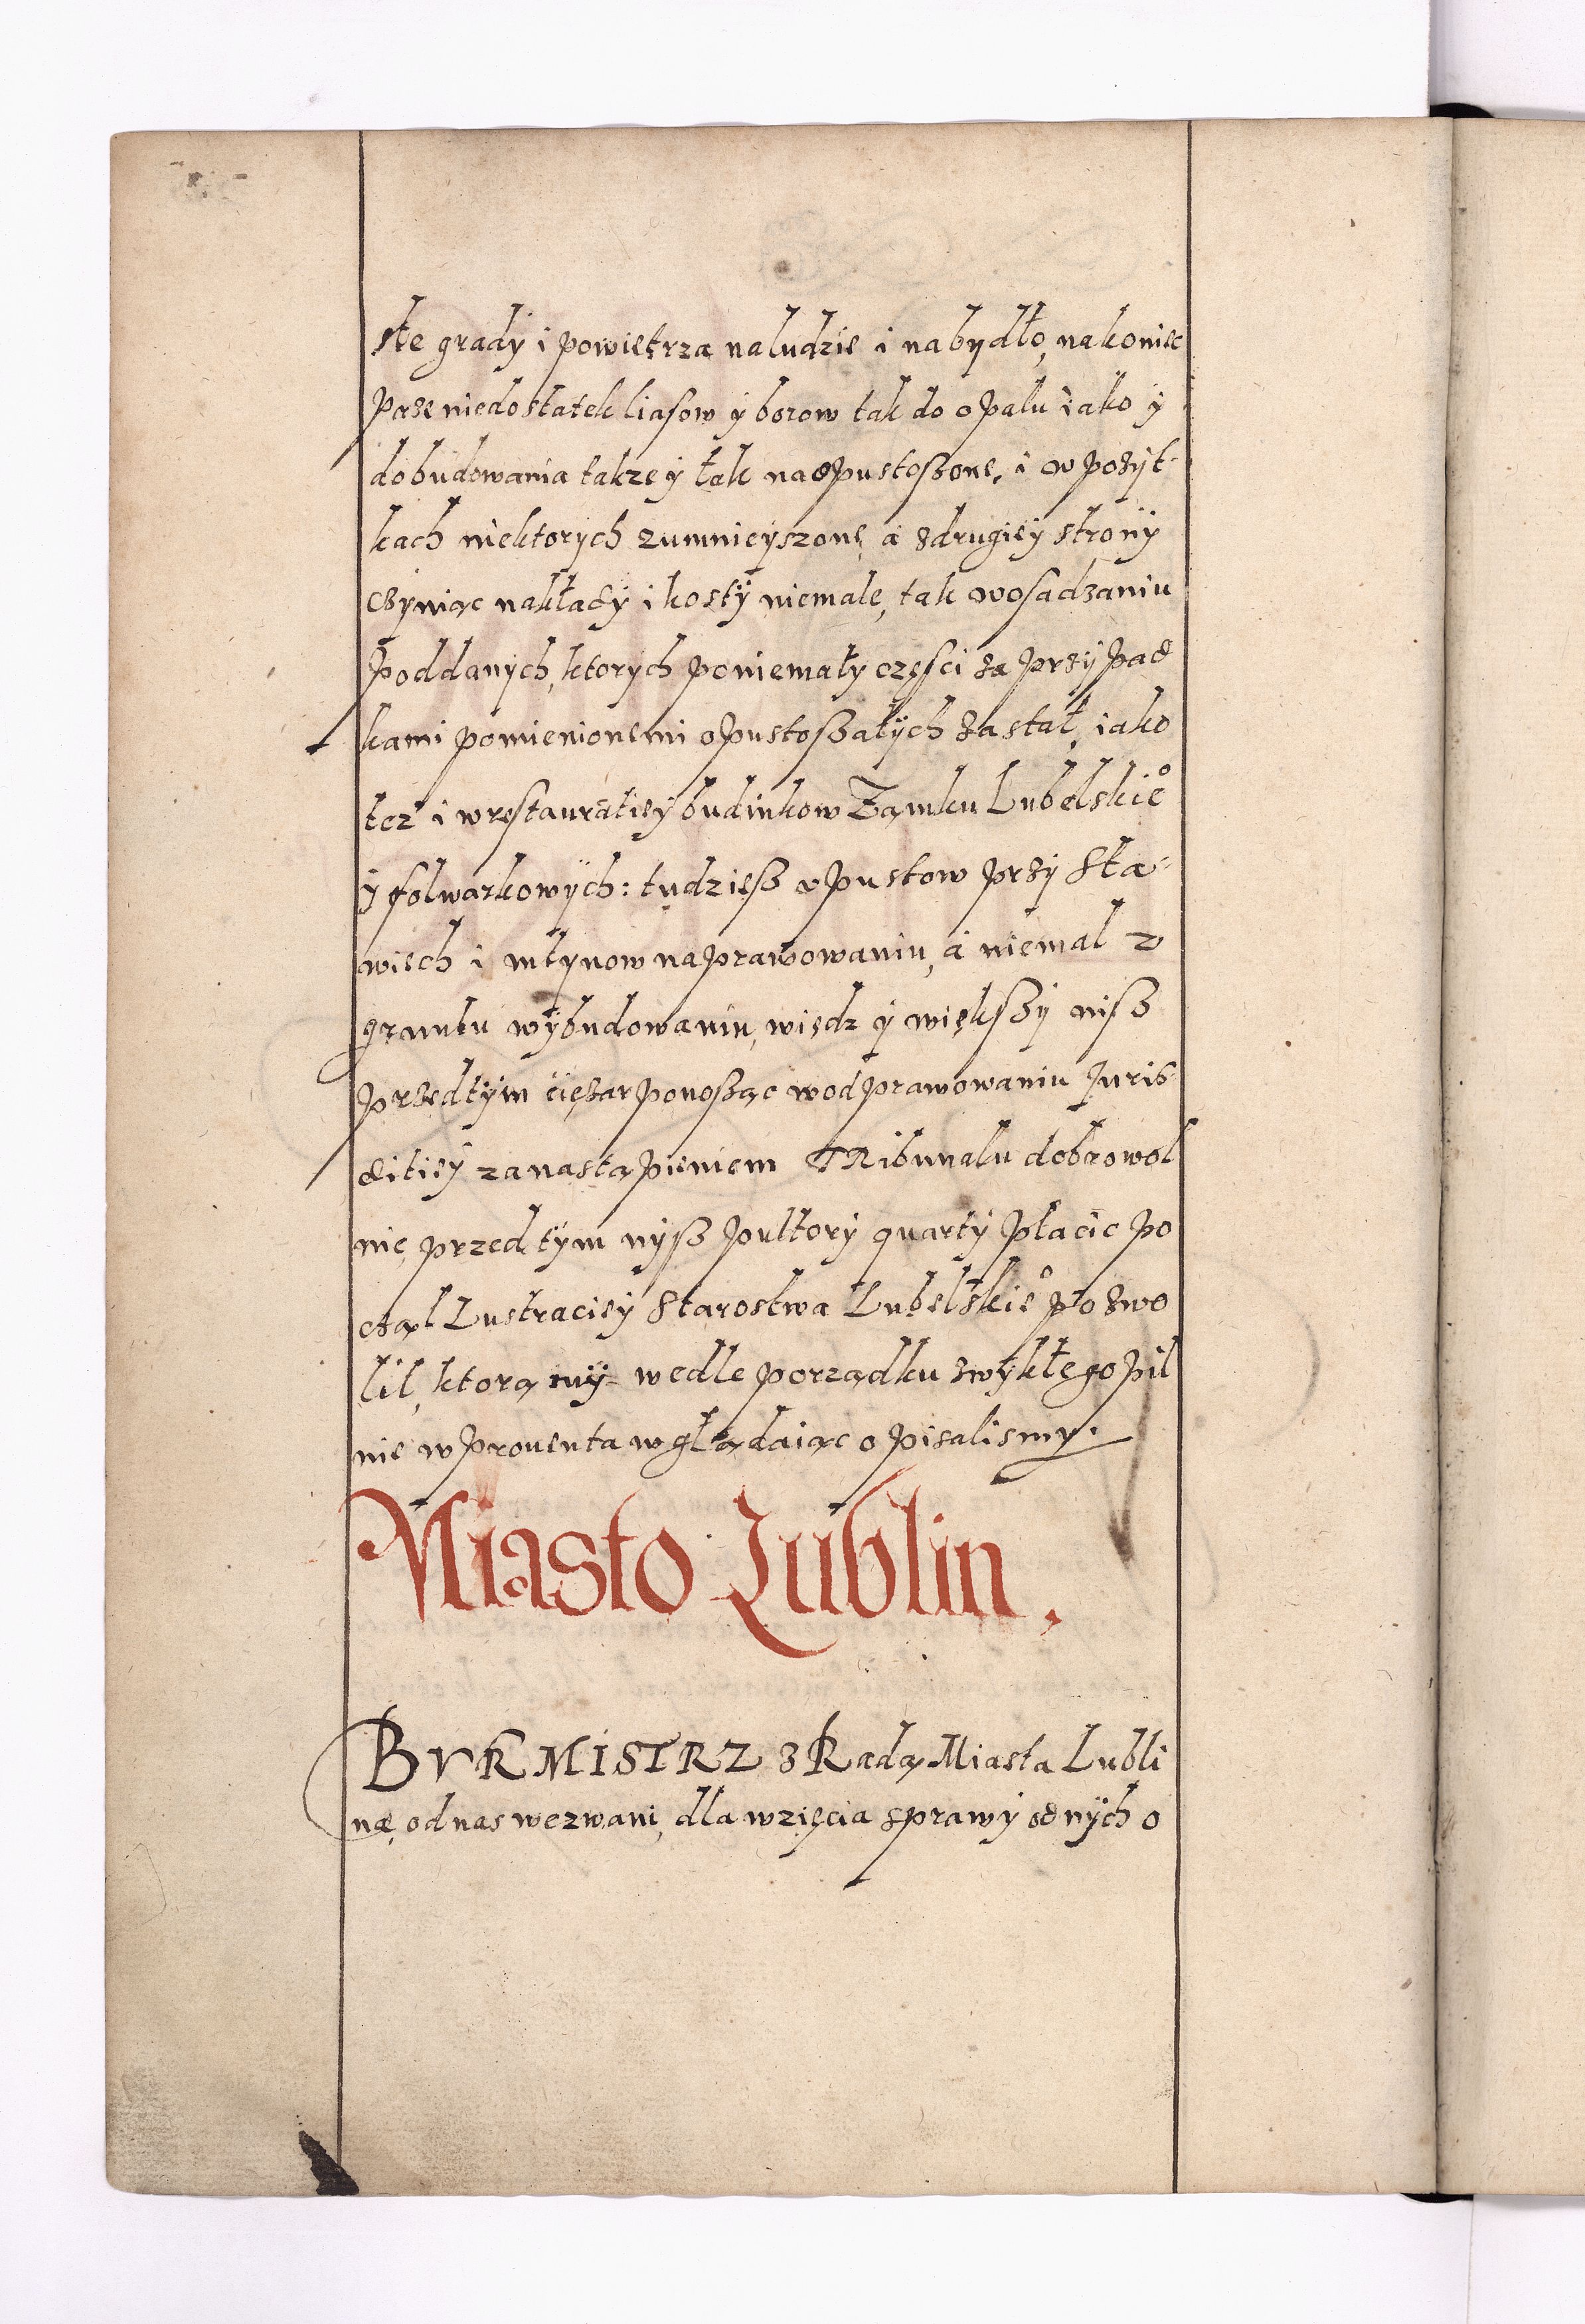 ste grady i powietrza naludzie i nabydło, nakoniec
Prze niedostatek liasow ÿ borow tak do opału iako ÿ
dobudowania takze ÿ tak naopustoszone, i w pozyt-
kach niektorych zumnieyszone, a zdrugieÿ stronÿ
czyniąc nakładÿ i kosztÿ niemałe, tak wosadzaniu
Poddanych, ktorych poniemały części za przÿpad
kami pomienionemi opustoszałÿch zastał, iako
tez i wrestauratieÿ budinkow Zamku Lubelskie°
ÿ folwarkowÿch: tudziesz upustow przÿ Sta-
wiech i młynow naprawowaniu, a niemal z
gruntu wÿbudowaniu, więdz ÿ większÿ nisz
przedtÿm ciężar ponosząc wodprawowaniu Juris-
ditieÿ zanastąpieniem TRibunału dobrowol
nie, przed tÿm nysz pułtorÿ quartÿ płacic po
cząl Lustracieÿ Starostwa Lubelskie° pozwo
lił, ktorą mÿ- wedle porządku zwÿkłego pil
nie w prouenta wglądaiąc opisalismy.
Miasto Lublin.
BVRMISTRZ z Radą Miasta Lubli
na, od nas wezwani, dla wzięcia sprawÿ od nÿch o